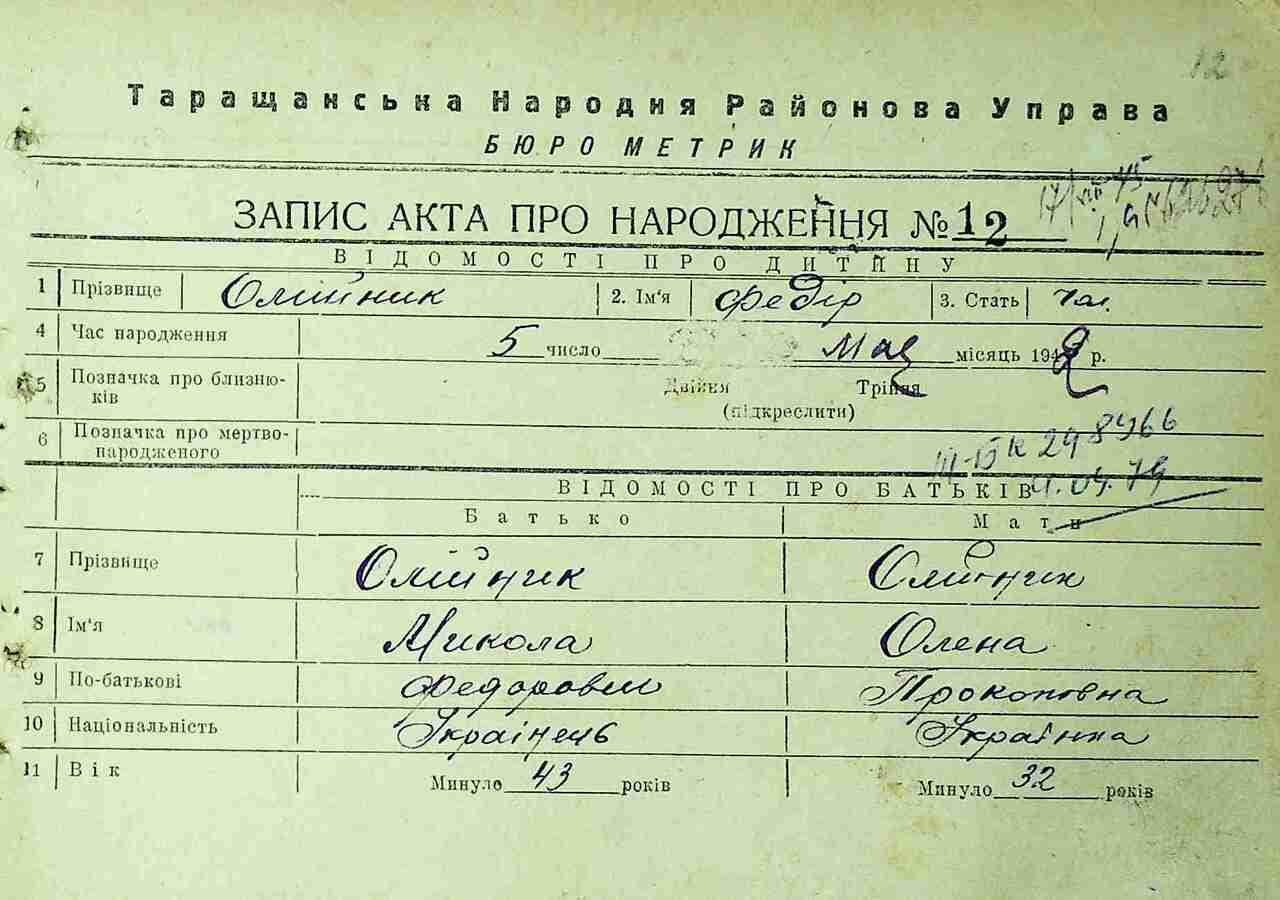 12
Таращанська Народня Районова Управа
БЮРО МЕТРИК
ЗАПИС АКТА ПРО НАРОДЖЕННЯ №12
ВІДОМОСТІ ПРО ДИТИНУ
1 Прізвище Олійник 2. Ім'я Федір 3. Стать чол.
4 Час народження 5 число Мая місяць 1942 р.
5 Позначка про близню- Двійня Трійня
ків (підкреслити)
6 Позначка про мертво-
народженого
ІІІ-БК 298466
ВІДОМОСТІ ПРО БАТЬКІВ
4.04.79
Батько Мати
7 Прізвище Олійник Олійник
8 Ім'я Микола Олена
9 По-батькові Федорович Прокоповна
10 Національність Українець Українка
11 Вік Минуло 43 років Минуло 32 років